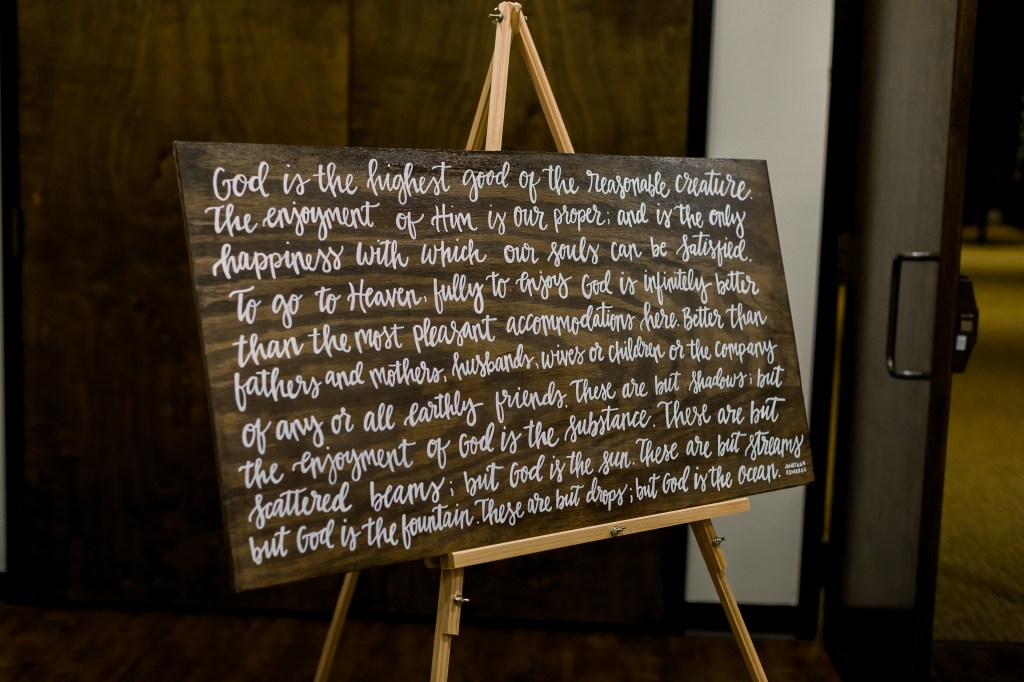 God is the highest good of the reasonable creature.
The enjoyment of Him is our proper; and is the only
happiness with which our souls can be satisfied.
To go to Heaven, fully to enjoy God is infinitely better
than the most pleasant accommodations here. Better than
fathers and mothers, husbands, wives or children or the company
of any or all earthly friends. These are but shadows; but
the enjoyment of God is the substance. These are but
scattered beams; but God is the sun. These are but streams
but God is the fountain. These are but drops; but God is the ocean.
JONATHAN
EDWARDS